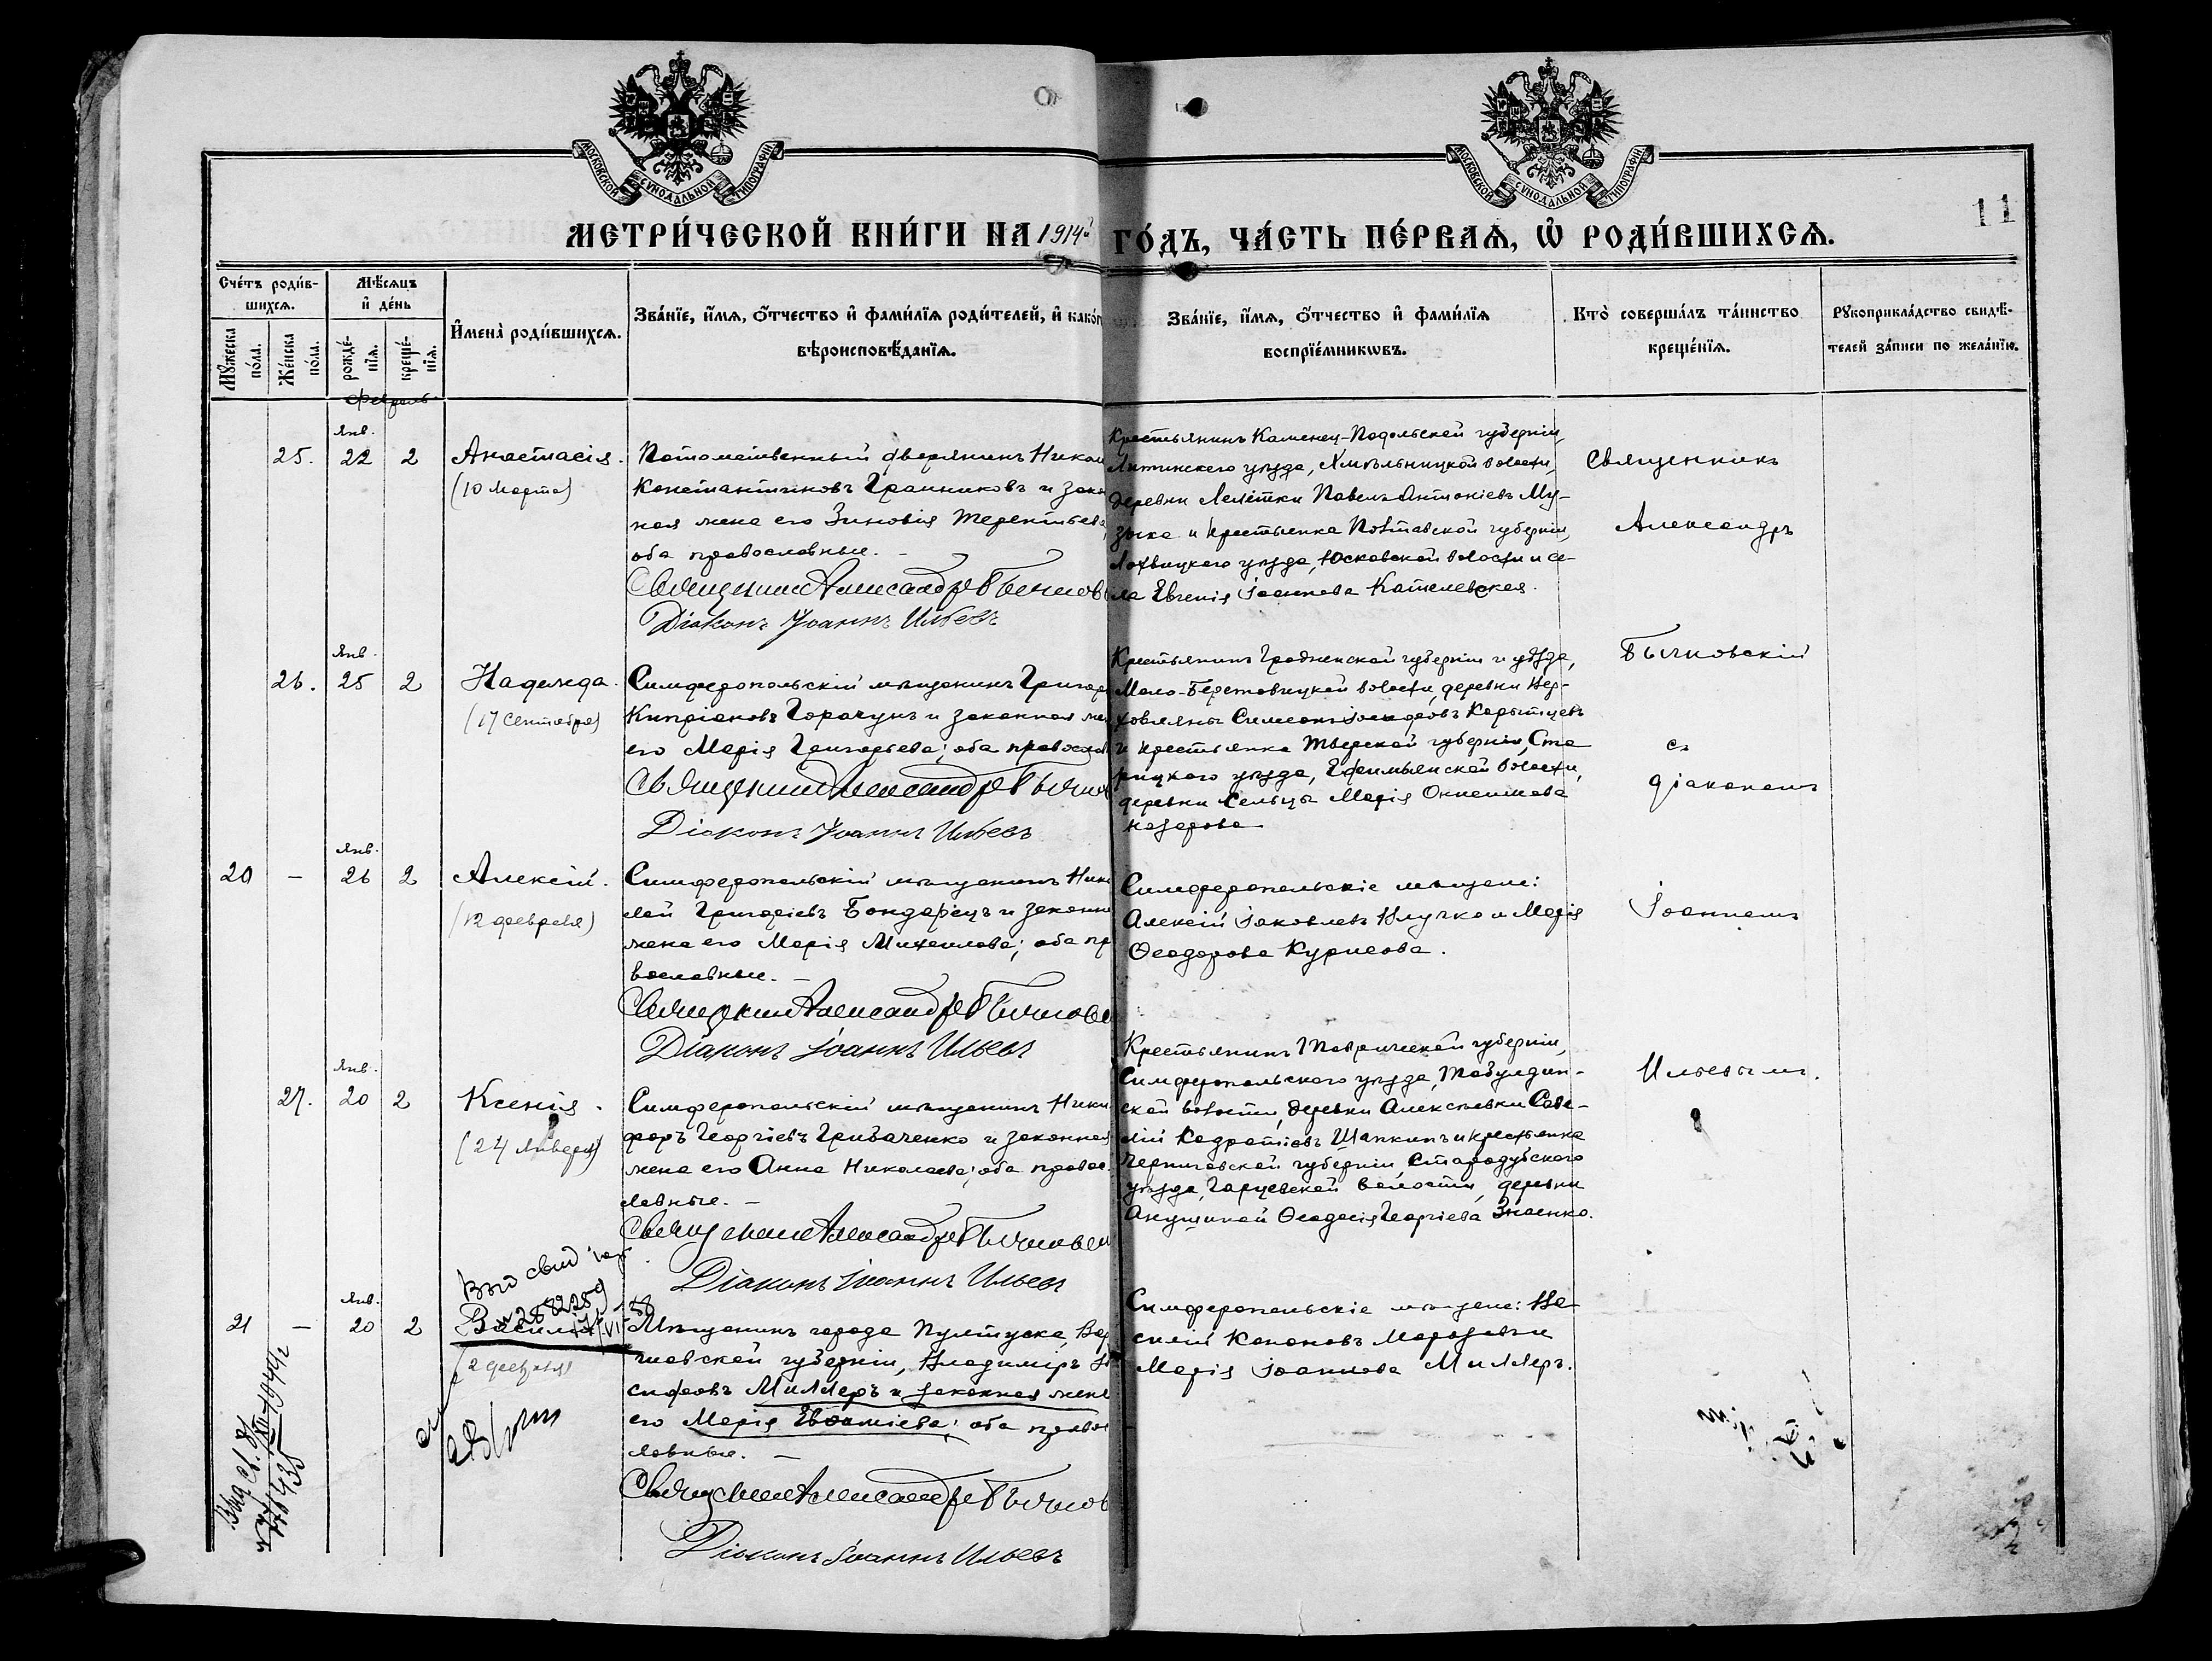 МОСКОВСКОЙ СѴНОДАЛЬНОЙ ТИПОГРАФІИ
МОСКОВСКОЙ СѴНОДАЛЬНОЙ ТИПОГРАФІИ
11
МЕТРИ́ЧЕСКОЙ КНИ́ГИ НА 1914й ГО́ДЪ, ЧА́СТЬ ПЕ́РВАѦ, Ѡ҆ РОДИ́ВШИХСѦ.
Сче́тъ роди́в-
шихсѧ.
Мꙋ́жеска
по́ла.
Же́нска
по́ла.
Мѣ́сѧцъ
и҆ де́нь
рожде́-
нїѧ.
креще́-
нїѧ.
И҆мена̀ роди́вшихсѧ.
Зва́нїе, и҆́мѧ, ѻ҆́тчество и҆ фами́лїѧ роди́телей, и҆ како́гѡ
вѣроисповѣ́данїѧ.
Зва́нїе, и҆́мѧ, ѻ҆́тчество и҆ фами́лїѧ
воспрїе́мникѡвъ.
Кто̀ соверша́лъ та́инство
креще́нїѧ.
Рꙋкоприкла́дство свидѣ́-
телей за́писи по жела́нїю.
Февраль
25.
Янв.
22 2
Анастасія.
(10 Марта)
Потомственный дворянинъ Никол
Константиновъ Гранниковъ и закон
ная жена его Зиновія Терентьева,
оба православные. –
Священник Александръ Бычков
Діаконъ Іоаннъ Ильевъ
Крестьянинъ Каменец-Подольской губерніи,
Литинскаго уѣзда, Хмѣльницкой волости,
деревни Лелітки Павелъ Антоніевъ Му-
зыка и крестьянка Полтавской губерніи,
Лохвицкаго уѣзда, Юсковской волости и се-
ла Евгенія Іоаннова Кателевская.
Священникъ
Александръ
Бычковскій
съ
діакономъ
Іоанномъ
Ильевымъ.
26.
Янв.
25 2
Надежда.
(17 Сентября)
Симферопольскій мѣщанинъ Григор
Кипріановъ Горачунъ и законная же
его Марія Григорьева; оба православ
Священник Александръ Бычков
Діаконъ Іоаннъ Ильевъ
Крестьянинъ Гродненской губерніи и уѣзда,
Мало-Берестовицкой волости, деревни Вер-
ховляны Симеонъ
и крестьянка Тверской губерніи, Ста
рицкаго уѣзда, Ефимьянской волости,
деревни Сельцы Марія
Назарова
20 –
Янв.
26 2
Алексій.
(12 февраля)
Симферопольскій мѣщанинъ Нико
лай Григоріевъ Бондарецъ и законн
жена его Марія Михаилова; оба пр
вославные. –
Священник Александръ Бычковск
Діаконъ Іоаннъ Ильевъ
Симферопольскіе мѣщане:
Алексій Іаковлевъ Клучко и Марія
Ѳеодорова Курисова.
27.
Янв.
20 2
Ксенія.
(24 Января)
Симферопольскій мѣщанинъ Ники
форъ Георгіевъ Грибаченко и законная
жена его Анна Николаева; оба право-
славные. –
Священник Александръ Бычковск
Діаконъ Іоаннъ Ильевъ
Крестьянинъ Таврической губерніи,
Симферопольского уѣзда, Табулдин-
ской волости, деревни Алексѣевки Саве-
лій Кодратіевъ Шапкинъ и крестьянка
Черниговской губерніи, Стародубского
уѣзда, Гарцевской волости, деревни
Ѳеодосія Георгіева Знаенко.
Выд свид
№ 2882259
21 –
Янв.
20 2
Василій
(2 февраля)
Мѣщанинъ города Пултуска, Вар
шавской губерніи, Владиміръ Іо
сифовъ Миллеръ и законная жена
его Марія Евѳиміева; оба правос
лавные. –
Священник Александръ Бычков
Діаконъ Іоаннъ Ильевъ
Симферопольскіе мѣщане: Ва
силій Кононовъ Морозовъ и
Марія Іоаннова Миллеръ.